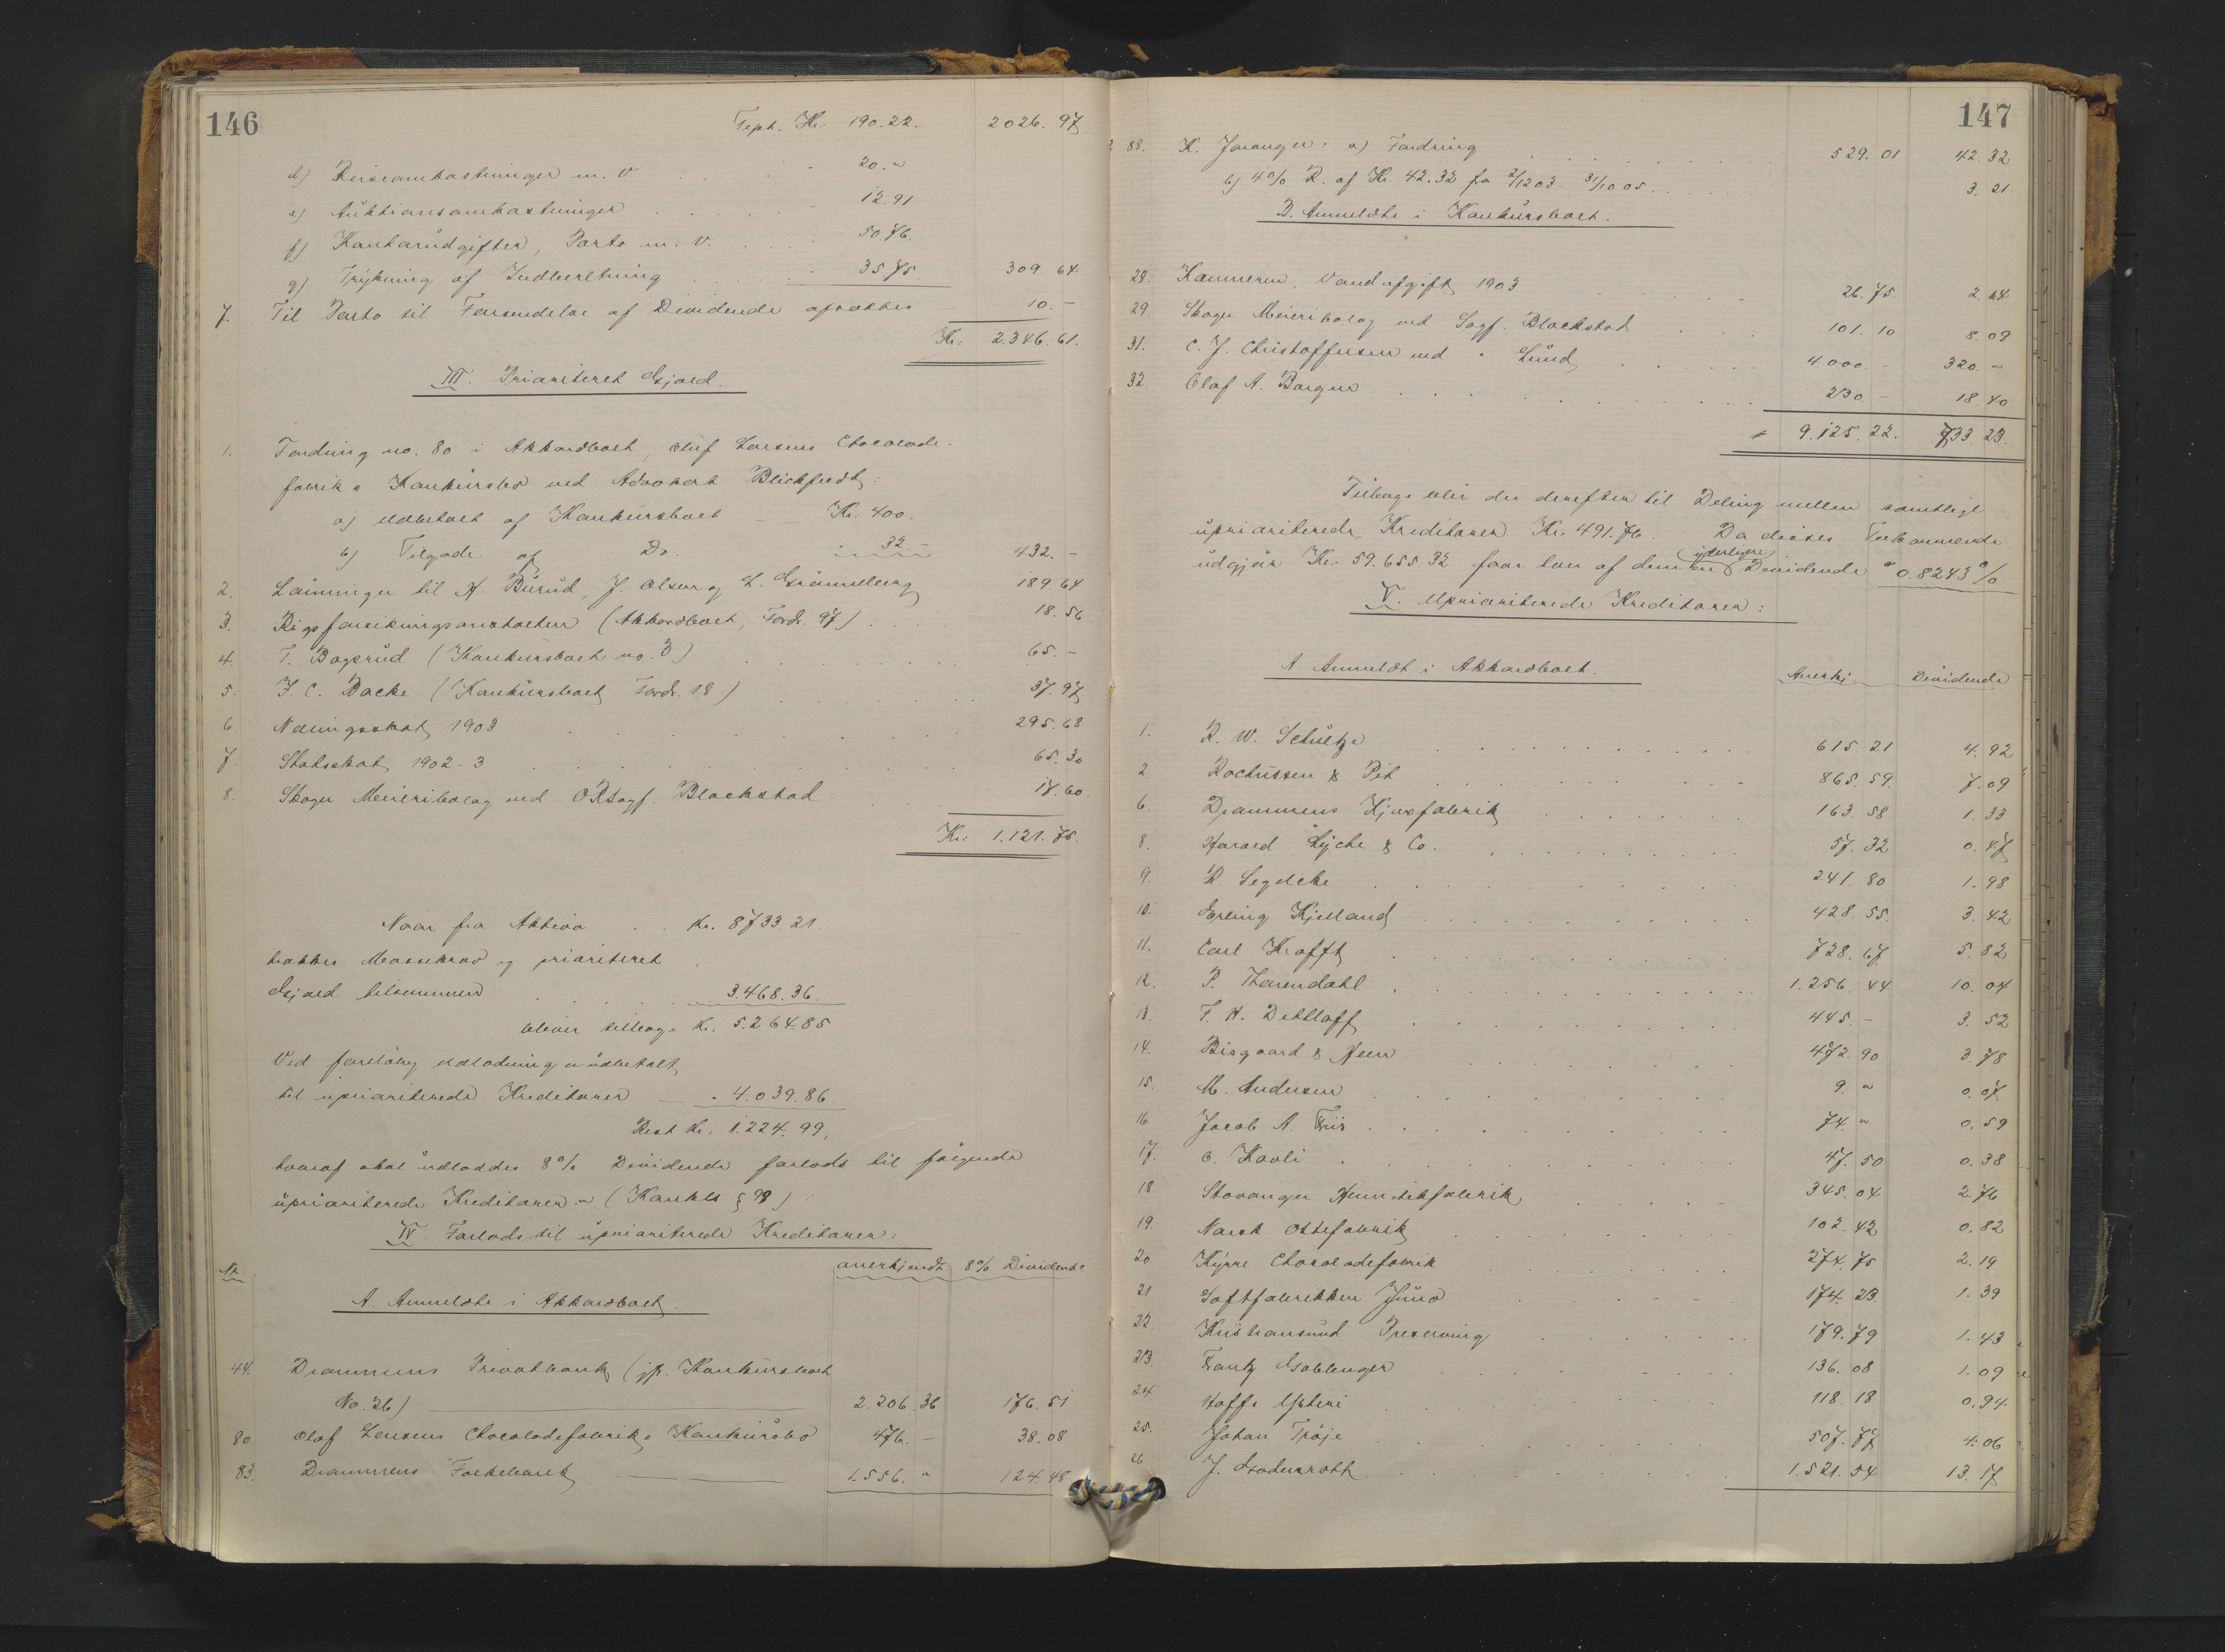 146
Transp. Kr. 190.22. 2026.97
d) Reiseomkostninger m. v. 20.„
e) Auktionsomkostninger 12.91
f) Kontorudgifter, Porto m. v. 50.76.
g) Trykning af Indberetning 35.75. 309.64
7. Til Porto til Forsendelse af Dividende afsættes 10.-
Kr. 2.346.61.
III. Prioriteret Gjæld.
1. Fordring no. 80 i Akkordboet, Oluf Larsens Chocolade-
fabriks Konkursbo ved Advokat Blichfeldt:
a) Udbetalt af Konkursboet Kr. 400.
b) Tilgode af Do. 32.- 432.-
2. Lønninger til A. Burud, J. Olsen og L. Grønneberg 189.64
3. Rigsforsikringsanstalten (Akkordboet, Fordr. 97) 18.56
4. T. Bagsrud (Konkursboet no. 3) 65.-
5. J. C. Backe (Konkursboet Fordr. 18) 37.97
6. Næringsskat 1903 295.68
7. Statsskat 1902-3 65.30
8. Skoger Meieribolag ved ORSagf. Blackstad 17.60.
Kr. 1.121.75.
Naar fra Aktiva Kr. 8733.21
trækkes Massekrav og prioriteret
Gjæld tilsammen 3.468.36.
bliver tilbage Kr. 5.264.85
Ved foreløbig Udlodning er udbetalt
til uprioriterede Kreditorer 4.039.86.
Rest Kr. 1.224.99.
hvoraf skal udloddes 8% Dividende forlods til følgende
uprioriterede Kreditorer (Konklo § 98):
IV. Forlods til uprioriterede Kreditorer:
Nr. anerkjendt 8% Dividende
A. Anmeldte i Akkordboet.
44. Drammens Privatbank (jfr. Konkursboet
No. 26) 2.206.36 176.51
80 Olaf Larsens Chocoladefabriks Konkursbo 476.- 38.08
83. Drammens Folkebank 1.556.„ 124.48
147
88. K. Joranger: a) Fordring 529.01 42.32
b) 4% R. af Kr. 42.32 fra 2/12 03 - 31/10 05 3.21.
B. Anmeldte i Konkursboet.
28. Kæmneren, Vandafgift 1903 26.75. 2.14
29. Skoger Meieribolag ved Sagf. Blackstad 101.10 8.09
31. C. J. Christoffersen ved " Lund 4.000.- 320.„
32. Olaf A. Borgen 230.- 18.40
9.125.22. 733.23.
Tilbage blir der derefter til Deling mellem samtlige
uprioriterede Kreditorer Kr. 491.76. Da disses Tilkommende
udgjør Kr. 59.655 32 faar hver af dem en yderligere Dividende 0.8243%
V. Uprioriterede Kreditorer:
A. Anmeldt i Akkordboet. Anerkj. Dividende
1. R. W. Schultze 615.21 4.92
2. Rochussen & Pik 865.59. 7.09
6. Drammens Kjæxfabrik 163.58 1.33
8. Harald Lyche & Co. 57.32 0.47
9. R. Segelcke 241.80 1.98
10. Erling Kjelland 428.55. 3.42
11. Carl Krafft 728.67 5.82
12. P. Thorendahl 1.256.44 10.04
13. F. H. Dettloff 445.- 3.52
14. Bisgaard & Heen 472.90 3.78
15. M. Andersen 9.„ 0.07
16 Jacob A. Friis 74.„ 0.59
17. O. Kavli 47.50 0.38
18. Stavanger Hermetikfabrik 345.04 2.76
19. Norsk Ostefabrik 102.42 0.82
20 Kyrre Chocoladefabrik 274.75 2.19
21 Saftfabrikken Juno 174.23. 1.39
22. Kristiansund Preserving 179.79 1.43
23. Frantz Goblenger 136.08 1.09
24. Hoffs Ysteri 118.18 0.94
25. Johan Trøje 507.77 4.06
26 J. Godenrath 1.521.54 13.17